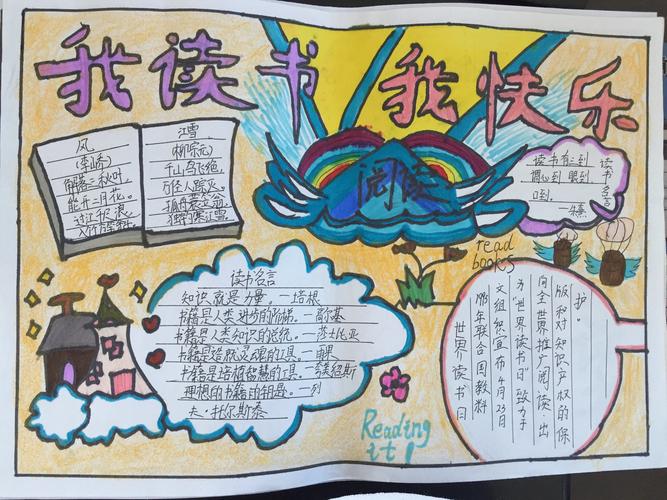 我读书 我快乐
风
(李峤)
解落三秋叶,
能开二月花。
过江千尺浪,
入竹万竿斜。
江雪
(柳宗元)
千山鸟飞绝,
万径人踪灭。
孤舟蓑笠翁,
独钓寒江雪。
阅读
读书名言
读书有三到
谓心到 眼到
口到.
—朱熹
read
books
读书名言
知识就是力量。—培根
书籍是人类进步的阶梯。—高尔基
书籍是人类知识的总统。—莎士比亚
书籍是造就灵魂的工具。—雨果
书籍是培植智慧的工具。—夸美纽斯
理想的书籍是智慧的钥匙。—列
夫·托尔斯泰
世界读书日
1995年联合国教科
文组织宣布4月23日
为“世界读书日”致力于
向全世界推广阅读、出
版和对知识产权的保
护。
Reading
it!